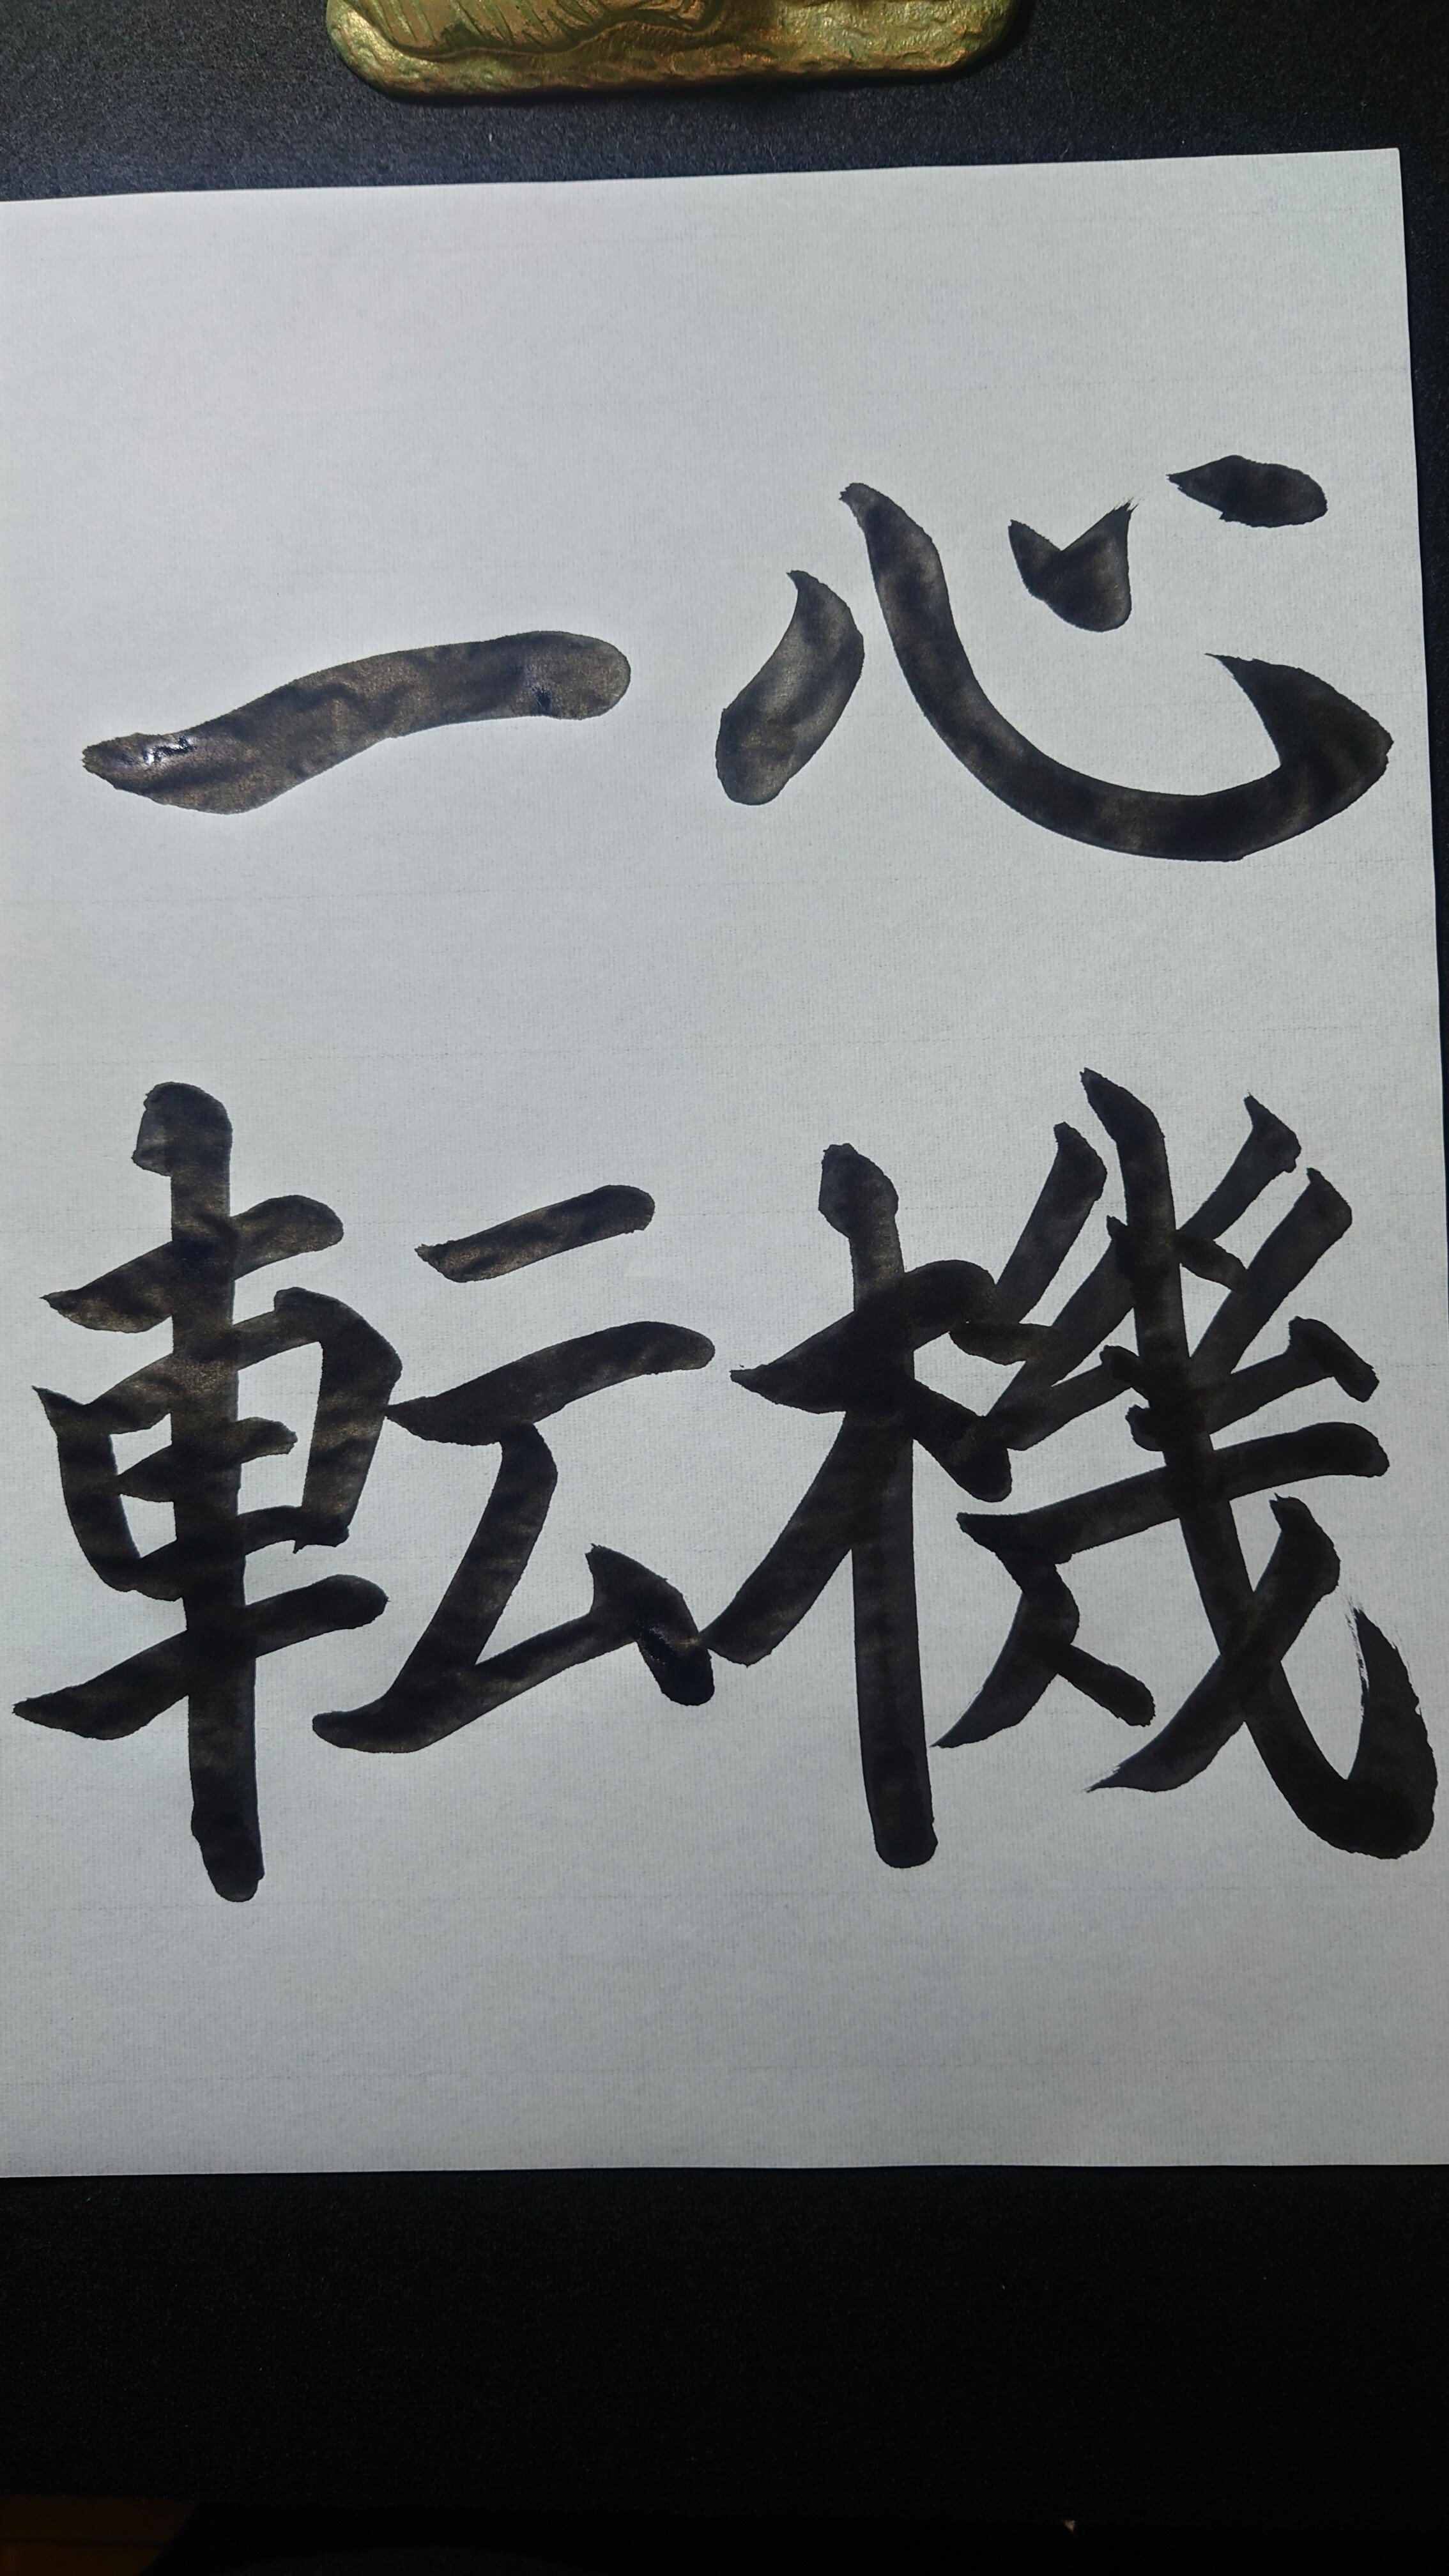 一心
転機